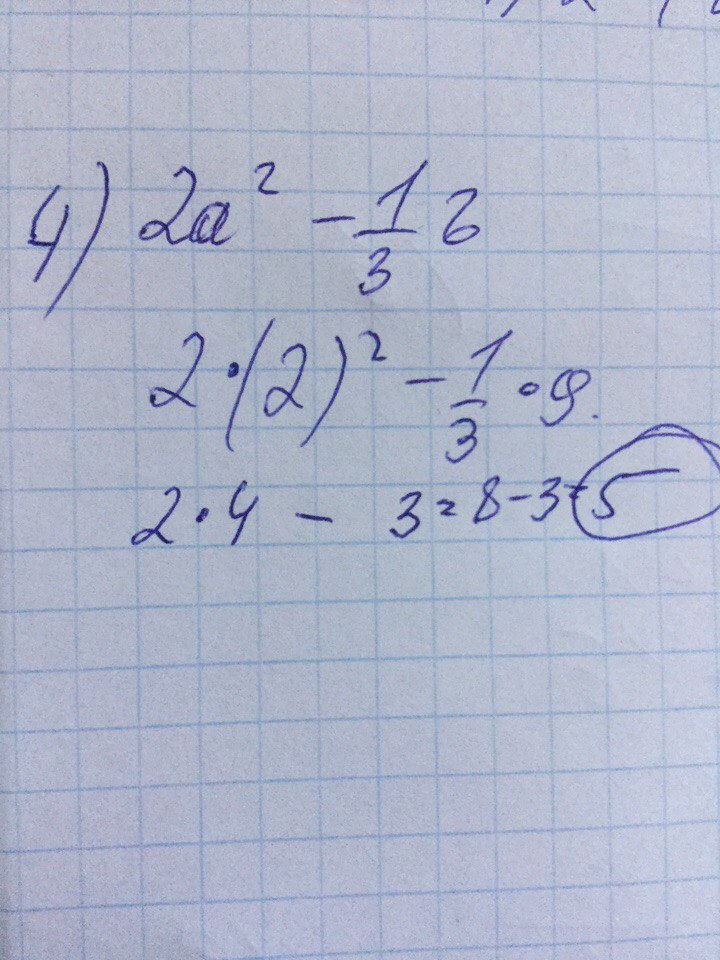 4) 2a² - 1/3 в
2·(2)² - 1/3 · 9.
2·4 - 3 = 8-3=5